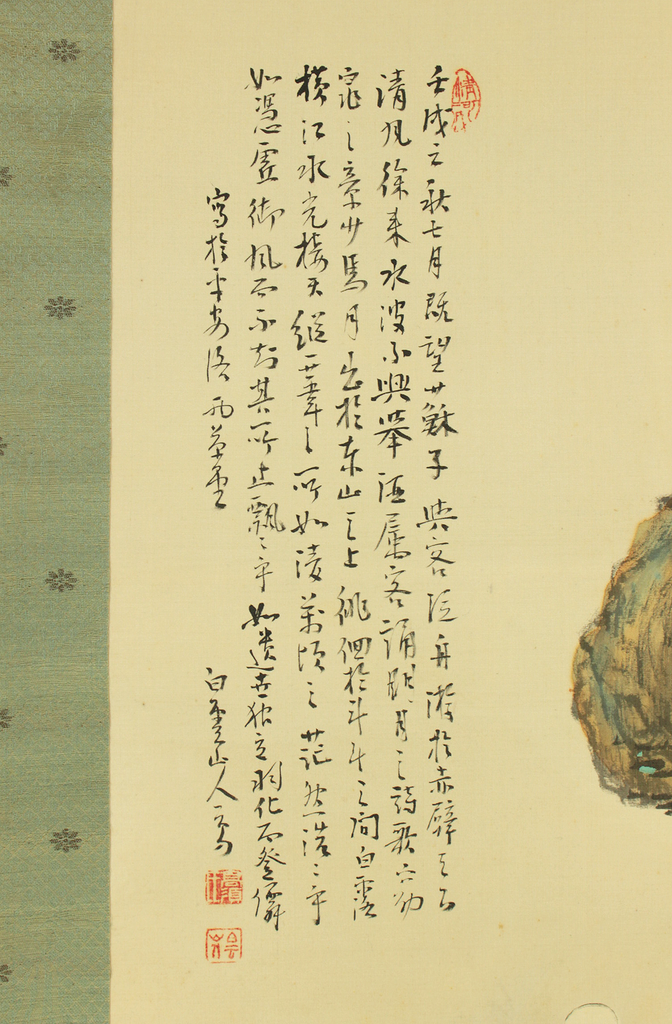 壬戌之秋七月既望蘇子與客泛舟游於赤壁之下
清風徐來水波不興舉酒屬客誦明月之詩歌窈
窕之章少焉月出於東山之上徘徊於斗牛之間白露
橫江水光接天縱一葦之所如凌萬頃之茫然浩〻乎
如憑虛御風而不知其所止飄〻乎如遺世獨立羽化而登僊
寫於平安
白雲山人